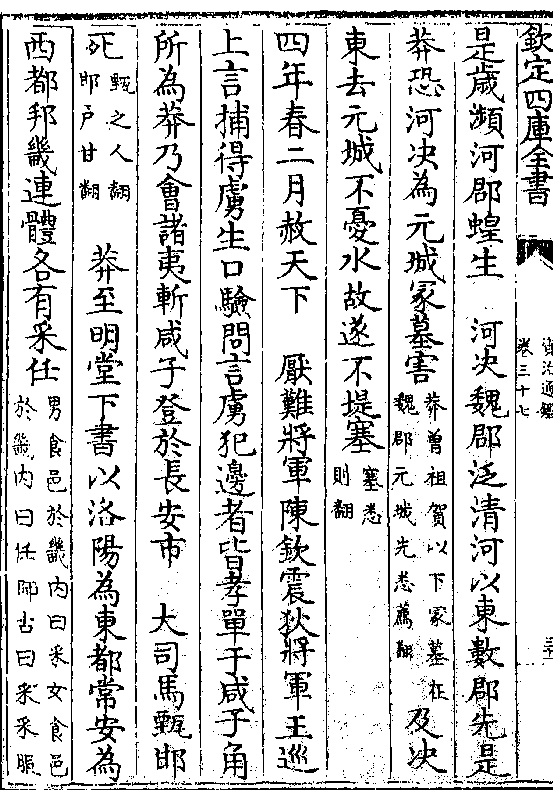 欽定四庫全書
資治通鑑
卷三十七
是歲瀕河郡蝗生　河決魏郡泛清河以東數郡先是
莽恐河決為元城冢墓害莽曾祖賀以下冢墓在魏郡元城先悉薦翻及決
東去元城不憂水故遂不堤塞塞悉則翻
四年春二月赦天下　厭難將軍陳欽震狄將軍王巡
上言捕得虜生口驗問言虜犯邊者皆孝單于咸子角
所為莽乃會諸夷斬咸子登於長安市　大司馬甄邯
死甄之人翻邯户甘翻　莽至明堂下書以洛陽為東都常安為
西都邦畿連體各有采任男食邑於畿内曰采女食邑於畿内曰任師古曰采采服